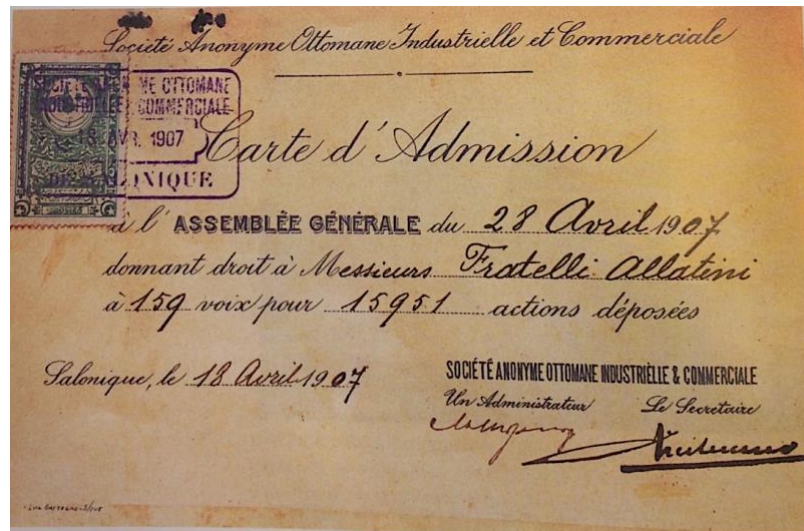 Société Anonyme Ottomane Industrielle et Commerciale
SOCIÉTÉ ANONYME OTTOMANE
INDUSTRIELLE & COMMERCIALE
18 AVR. 1907
DE SALONIQUE
Carte d'Admission
à l'ASSEMBLÉE GÉNÉRALE du 28 Avril 1907
donnant droit à Messieurs Fratelli Allatini
à 159 voix pour 15951 actions déposées
Salonique, le 18 Avril 1907
SOCIÉTÉ ANONYME OTTOMANE INDUSTRIËLLE & COMMERCIALE
Un Administrateur Le Secrétaire